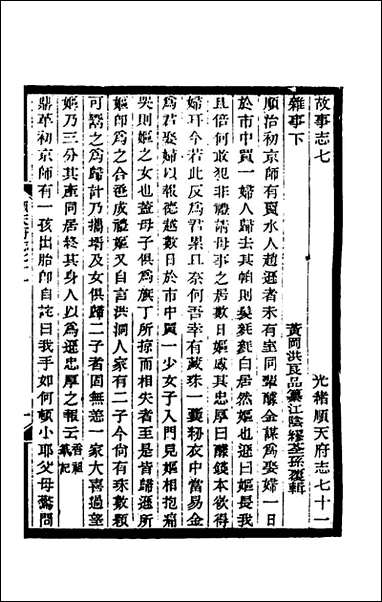 故事志七　光緒順天府志七十一
雜事下
黃岡洪良品纂江陰繆荃孫覆輯
順治初京師有賣水人趙遜者未有室同輩醵金謀爲娶婦一日
於市中買一婦人歸去其帕則髮毿毿白居然嫗也遜曰嫗長我
且倍何敢犯非禮請母事之居數日嫗感其忠厚曰醵錢本欲得
婦耳今若此反爲君累且奈何吾幸有藏珠一囊紉衣中當易金
爲君娶婦以報德越數日於市中買一少女子入門見嫗相抱痛
哭則嫗之女也蓋母子俱爲旗丁所掠而相失者至是皆歸遜所
嫗卽爲之合巹成禮嫗又自言洪洞人家有二子今尙有珠數顆
可鬻之爲歸計乃攜壻及女俱歸二子者固無恙一家大喜過望
嫗乃三分其產同居終其身人以爲遜忠厚之報云香祖筆記
鼎革初京師有一孩出胎卽自詫曰我手如何頓小耶父母驚問